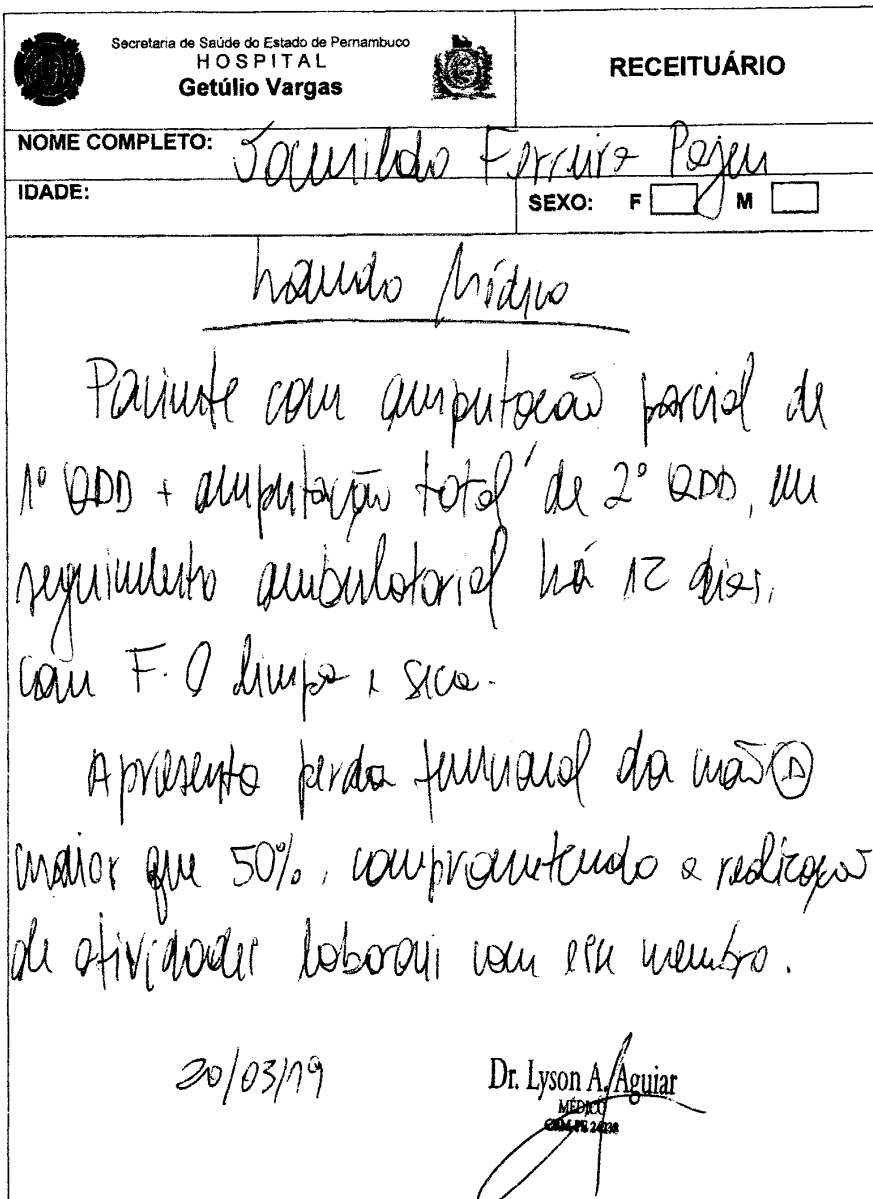 Secretaria de Saúde do Estado de Pernambuco
HOSPITAL
Getúlio Vargas
RECEITUÁRIO
NOME COMPLETO: Ferreira Pajeu
IDADE:
SEXO: F M
Laudo Médico
Paciente com amputação parcial de
1º QDD + amputação total de 2º QDD, em
seguimento ambulatorial há 12 dias,
com F.O limpa e seca.
Apresenta perda funcional da mão D
maior que 50%, comprometendo a realização
de atividades laborais com esse membro.
20/03/19
Dr. Lyson A. Aguiar
MÉDICO
CRM-PE